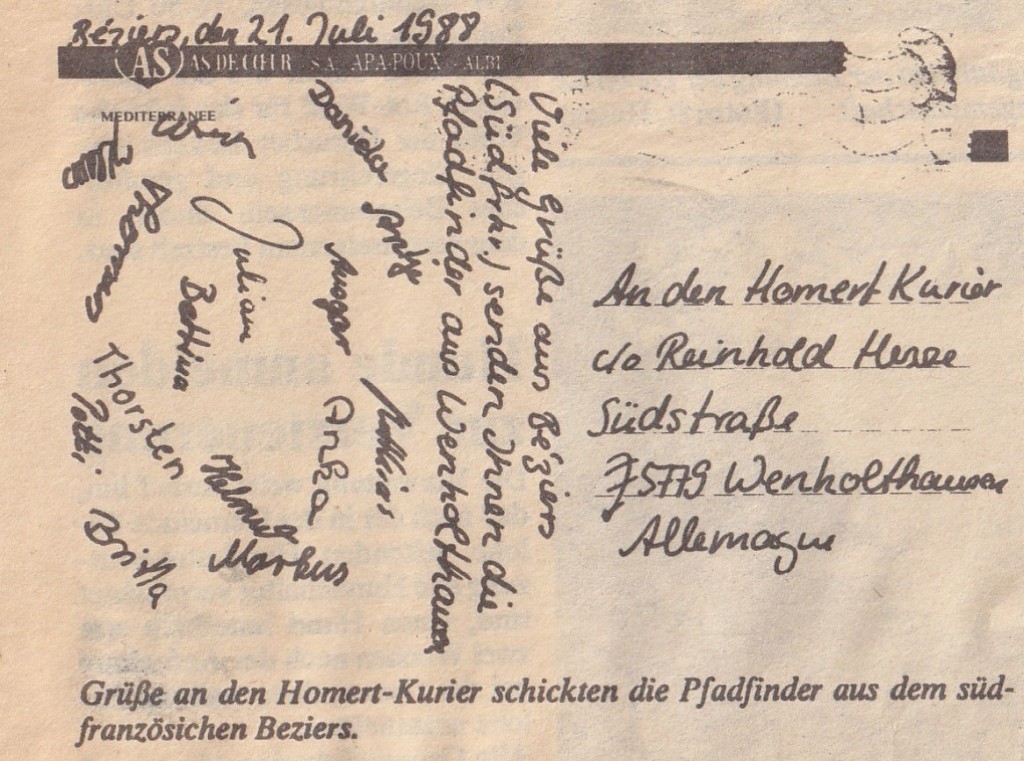 Béziers, den 21. Juli 1988
AS AS DE CŒUR S.A. APA-POUX - ALBI
MEDITERRANEE
Viele Grüße aus Béziers
(Südfrkr.) senden Ihnen die
Pfadfinder aus Wenholthausen
Daniela
Antje
Mathias
Ansgar
Anka
Julian
Bettina
Helmut
Markus
Thomas
Thorsten
Patti
Britta
An den Homert Kurier
c/o Reinhold Hesse
Südstraße
5779 Wenholthausen
Allemagne
Grüße an den Homert-Kurier schickten die Pfadfinder aus dem süd-
französichen Beziers.